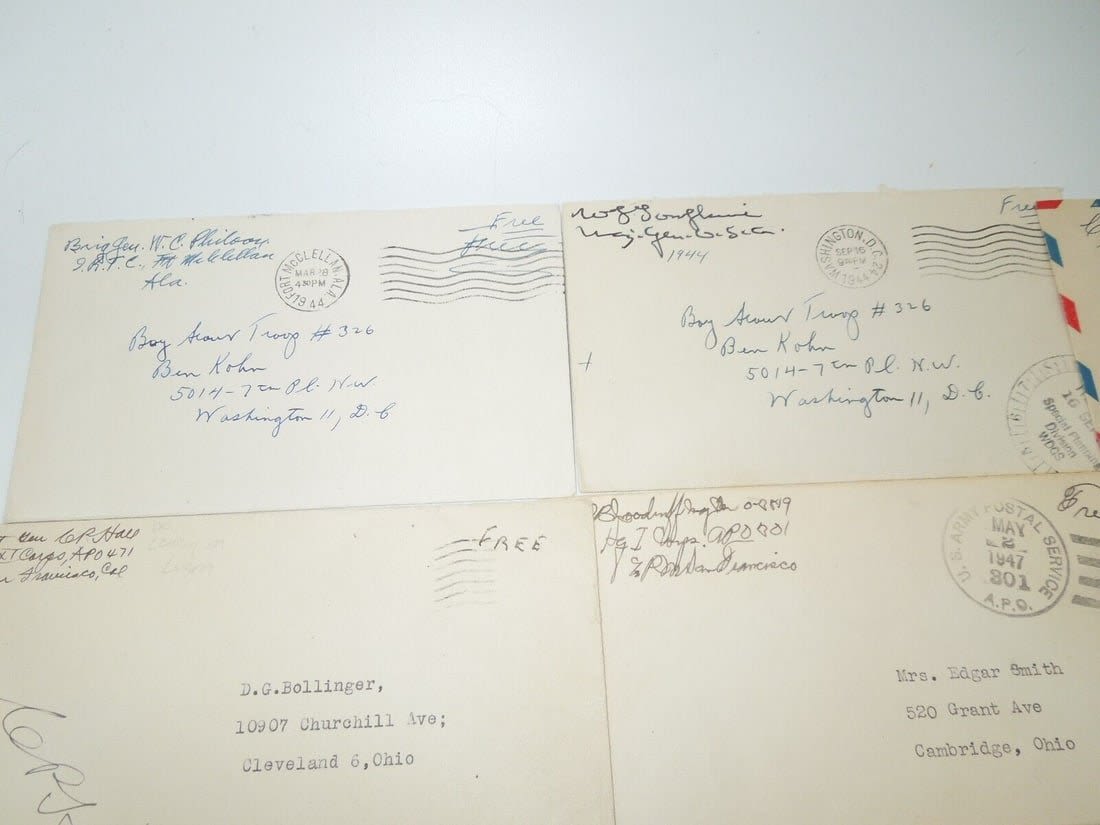 Brig Gen. W. C. Philoon
I.R.T.C., Ft McClellan
Ala.
FORT MCCLELLAN, ALA.
MAR 28
4 30 PM
1944
Free
Boy Scout Troop # 326
Ben Kohn
5014-7th Pl. N.W.
Washington 11, D.C
Maj. Gen.
1944
WASHINGTON, D.C. 24
SEP 16
PM
1944
Free
Boy Scout Troop # 326
Ben Kohn
5014-7th Pl. N.W.
Washington 11, D.C.
16 SE
Special Plannin
Division
WDGS
Gen CP Hall
XI Corps, APO 471
Francisco, Cal
FREE
D.G.Bollinger,
10907 Churchill Ave;
Cleveland 6,Ohio
Hq I Corps. APO 301
San Francisco
U.S. ARMY POSTAL SERVICE
MAY
2
1947
301
A.P.O.
Fre
Mrs. Edgar Smith
520 Grant Ave
Cambridge, Ohio